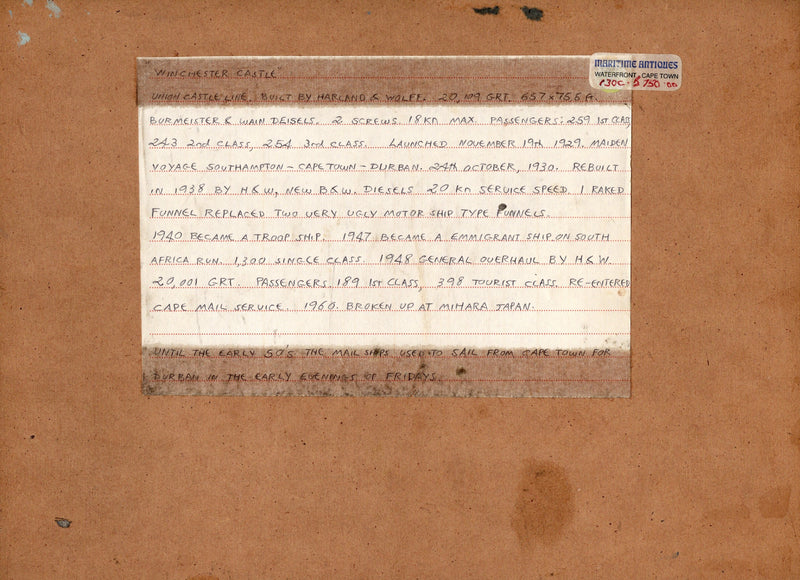 "WINCHESTER CASTLE"
UNION CASTLE LINE. BUILT BY HARLAND & WOLFF. 20,109 GRT. 657 x 75.5 ft.
BURMEISTER & WAIN DEISELS. 2 SCREWS. 18 Kn MAX. PASSENGERS: 259 1st CLASS,
243 2nd CLASS, 254 3rd CLASS. LAUNCHED NOVEMBER 19th 1929. MAIDEN
VOYAGE SOUTHAMPTON – CAPE TOWN – DURBAN. 24th OCTOBER, 1930. REBUILT
IN 1938 BY H&W, NEW B&W. DIESELS 20 Kn SERVICE SPEED. 1 RAKED
FUNNEL REPLACED TWO VERY UGLY MOTOR SHIP TYPE FUNNELS.
1940 BECAME A TROOP SHIP. 1947 BECAME A EMMIGRANT SHIP ON SOUTH
AFRICA RUN. 1,300 SINGLE CLASS. 1948 GENERAL OVERHAUL BY H&W.
20,001 GRT. PASSENGERS. 189 1st CLASS, 398 TOURIST CLASS. RE-ENTERED
CAPE MAIL SERVICE. 1960. BROKEN UP AT MIHARA JAPAN.
UNTIL THE EARLY 50'S THE MAIL SHIPS USED TO SAIL FROM CAPE TOWN FOR
DURBAN IN THE EARLY EVENINGS OF FRIDAYS.
MARITIME ANTIQUES
WATERFRONT, CAPE TOWN
750.00